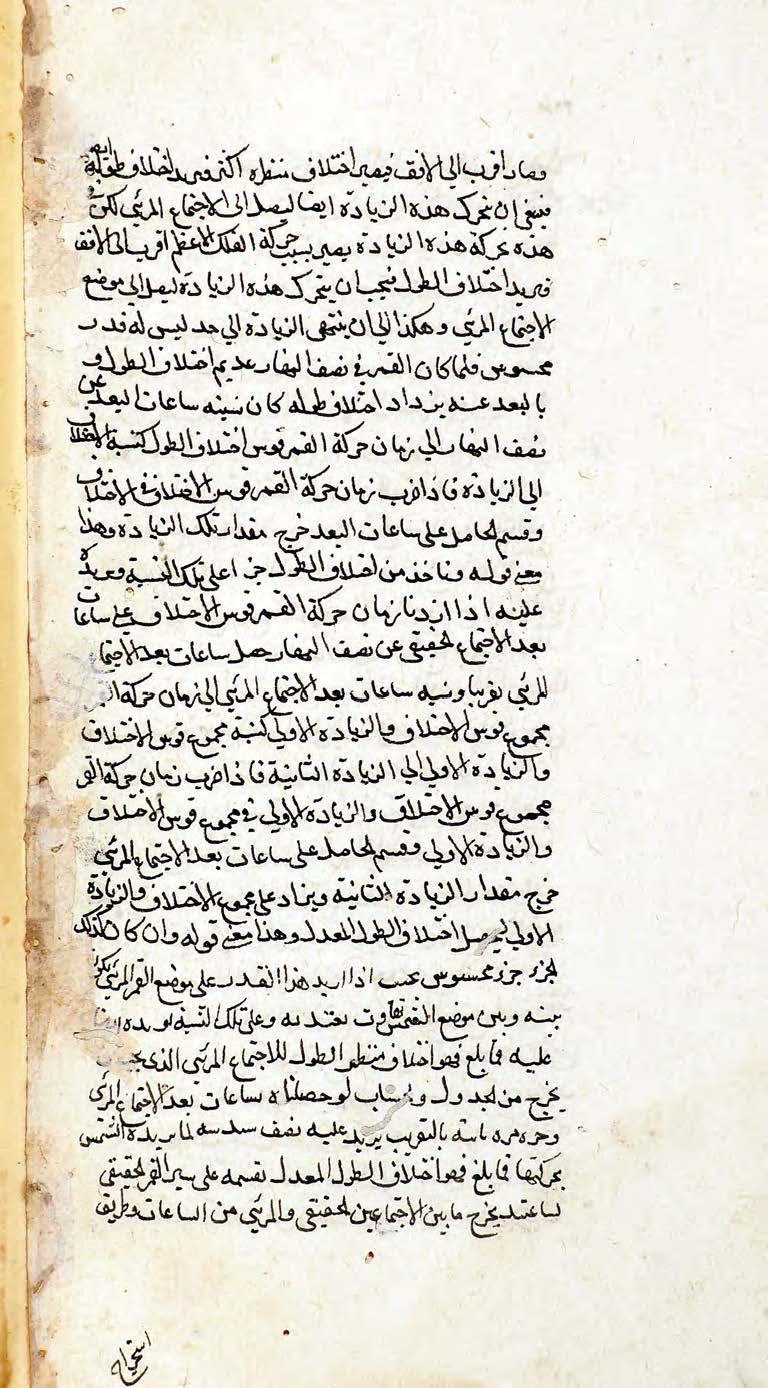 وصار اقرب الي الافق فيصير اختلاف منظره اكثر فيزيد اختلاف طوله
فينبغي ان تحرك هذه الزيادة ايضا ليصل الي الاجتماع المرئي لكن
هذه بحركة هذه الزيادة يصير بسبب حركة الفلك الاعظم اقرب الي الافق
فيزيد اختلاف الطول فيجب ان يتحرك هذه الزيادة ليصل الي موضع
الاجتماع المرئي وهكذا الي ان ينتهي الزيادة الي حد ليس له قدر
محسوس فلما كان القمر في نصف النهار عديم اختلاف الطول و
بالبعد عنه يزداد اختلاف طوله كان نسبة ساعات البعد عن
نصف النهار الي زمان حركة القمر قوس اختلاف الطول كنسبة الاختلاف
الي الزيادة فاذا ضرب زمان حركة القمر قوس الاختلاف في الاختلاف
وقسم الحاصل علي ساعات البعد خرج مقدار تلك الزيادة وهذا
معني قوله وناخذ من اختلاف الطول جزءا علي تلك النسبة ونزيده
عليه اذا زدنا زمان حركة القمر قوس الاختلاف علي ساعات
بعد الاجتماع الحقيقي عن نصف النهار حصل ساعات بعد الاجتماع
المرئي تقريبا ونسبة ساعات بعد الاجتماع المرئي الي زمان حركة
مجموع قوس الاختلاف والزيادة الاولي كنسبة مجموع قوس الاختلاف
والزيادة الاولي الي الزيادة الثانية فاذا ضرب زمان حركة القمر
مجموع قوس الاختلاف والزيادة الاولي في مجموع قوس الاختلاف
والزيادة الاولي وقسم الحاصل علي ساعات بعد الاجتماع المرئي
خرج مقدار الزيادة الثانية ويزاد علي مجموع الاختلاف والزيادة
الاولي ليحصل اختلاف الطول المعدل وهذا معني قوله وان كان لذلك
الجزء جزء محسوس بحيث اذا زيد هذا القدر علي موضع القمر المرئي يكون
بينه وبين موضع الشمس تفاوت يعتد به وعلي تلك النسبة نزيده ايضا
عليه فما بلغ فهو اختلاف منظر الطول للاجتماع المرئي الذي
يخرج من الجدول وحساب لو حصلناه بساعات بعد الاجتماع المرئي
بالتقريب يزيد عليه نصف سدسه لما يزيده الشمس
بحركتها فما بلغ فهو اختلاف الطول المعدل نقسمه علي سير القمر الحقيقي
لساعته يخرج ما بين الاجتماعين الحقيقي والمرئي من الساعات وطريق
استخراجه